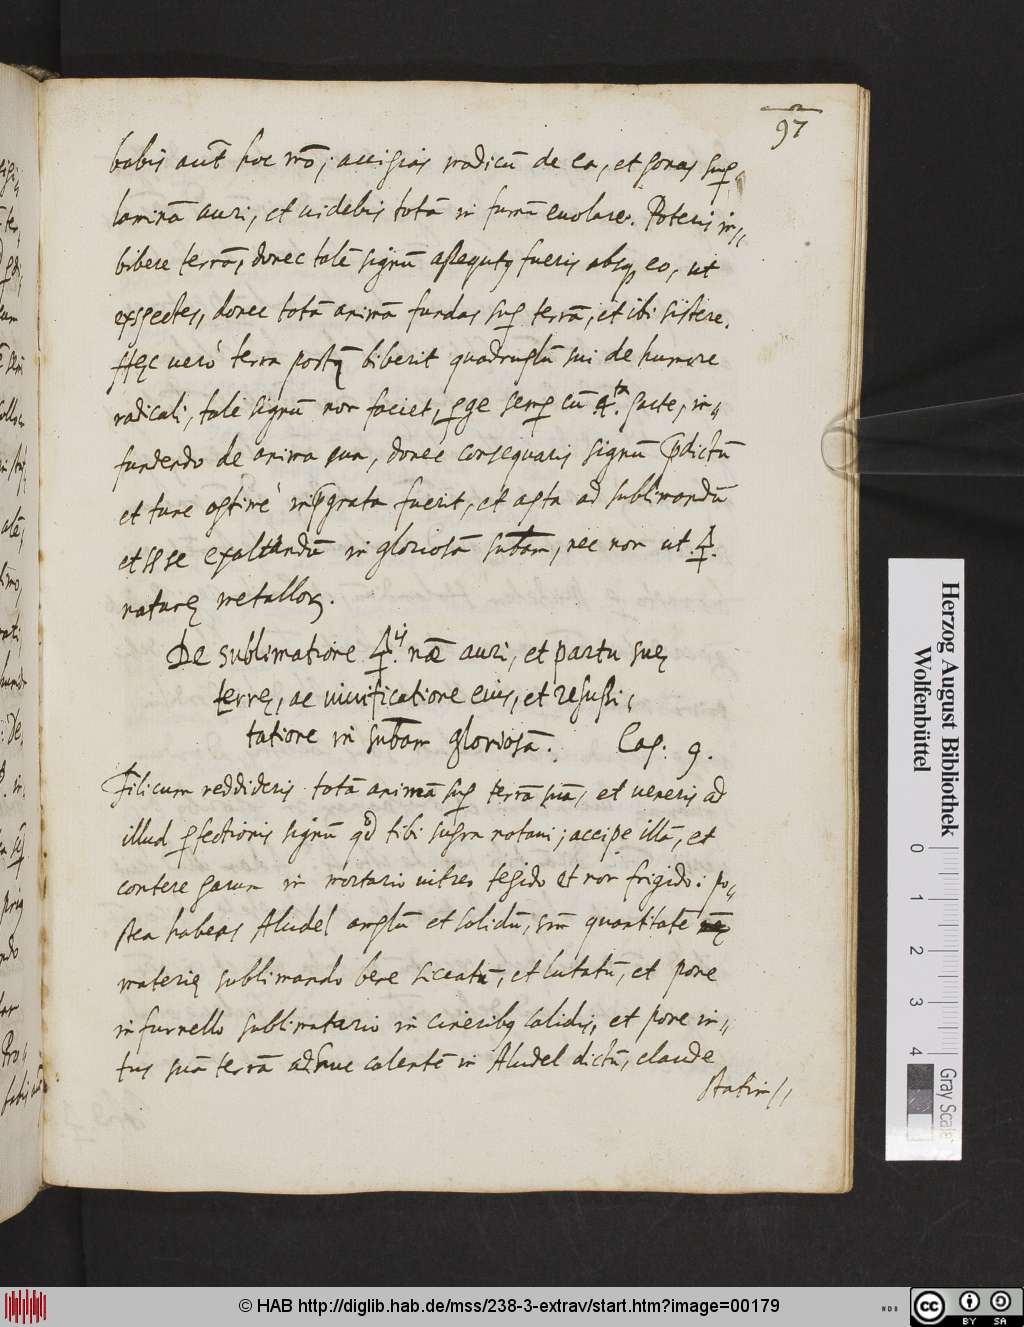 97
babis aut̃ hoc mõ; accipias modicũ de ea, et ponas sup̱
laminã auri, et uidebis totã in fumũ euolare. Poteris im„
bibere terrã, donec talẽ signũ assequutꝰ fueris absq, eo, ut
expectes, donec totã animã fundas sup̱ terrã, et ibi sistere.
Hęc uerò terra postq̃ biberit quadruplũ sui de humore
radicali, tale signũ non faciet, p̱ge semp̱ cũ 4.ta parte, in„
fundendo de anima sua, donec consequaris signũ p̃dictũ
et tunc optimè inp̱grata fuerit, et apta ad sublimandũ
et esse exaltandũ in gloriosã subãm, nec non ut 🜍.
naturę metallorꝫ.
De sublimatione 🜍.ris nãe auri, et partu suę
terrę, ac uiuificatione eius, et resusci„
tatione in subãm gloriosã. Cap. 9.
Filicum reddideris totã animã sup̱ terrã suã, et ueneris ad
illud p̱fectionis signũ qd̃ tibi supra notaui; accipe illã, et
contere parum in mortario uitreo tepido et non frigido: po„
stea habeas Aludel amplũ et solidũ, sm̃ quantitatẽ
materię sublimando bene siccatũ, et lutatũ, et pone
in furnello sublimatario in cineribꝰ calidis, et pone in„
tus suã terrã adhuc calentẽ in Aludel dictũ, claude
statim„
Herzog August Bibliothek
Wolfenbüttel
0 1 2 3 4
Gray Scale
© HAB http://diglib.hab.de/mss/238-3-extrav/start.htm?image=00179
cc BY SA